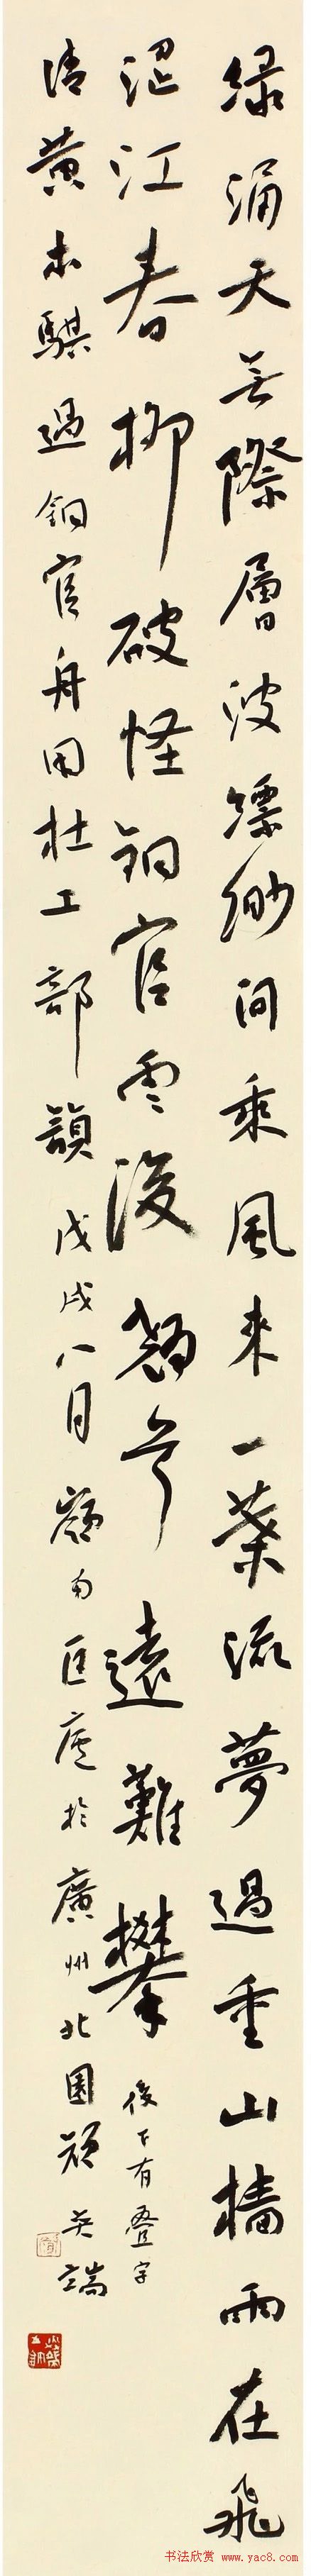 綠涌天無際層波縹緲間乘風來一葉流夢過重山檣雨在飛
澀江春柳破怪銅官雲後翹首遠難攀
後下有叠字
清黄本騏過銅官舟用杜工部韻戊戌八月嶺南匡廬於廣州北園
书法欣赏 www.yac8.com